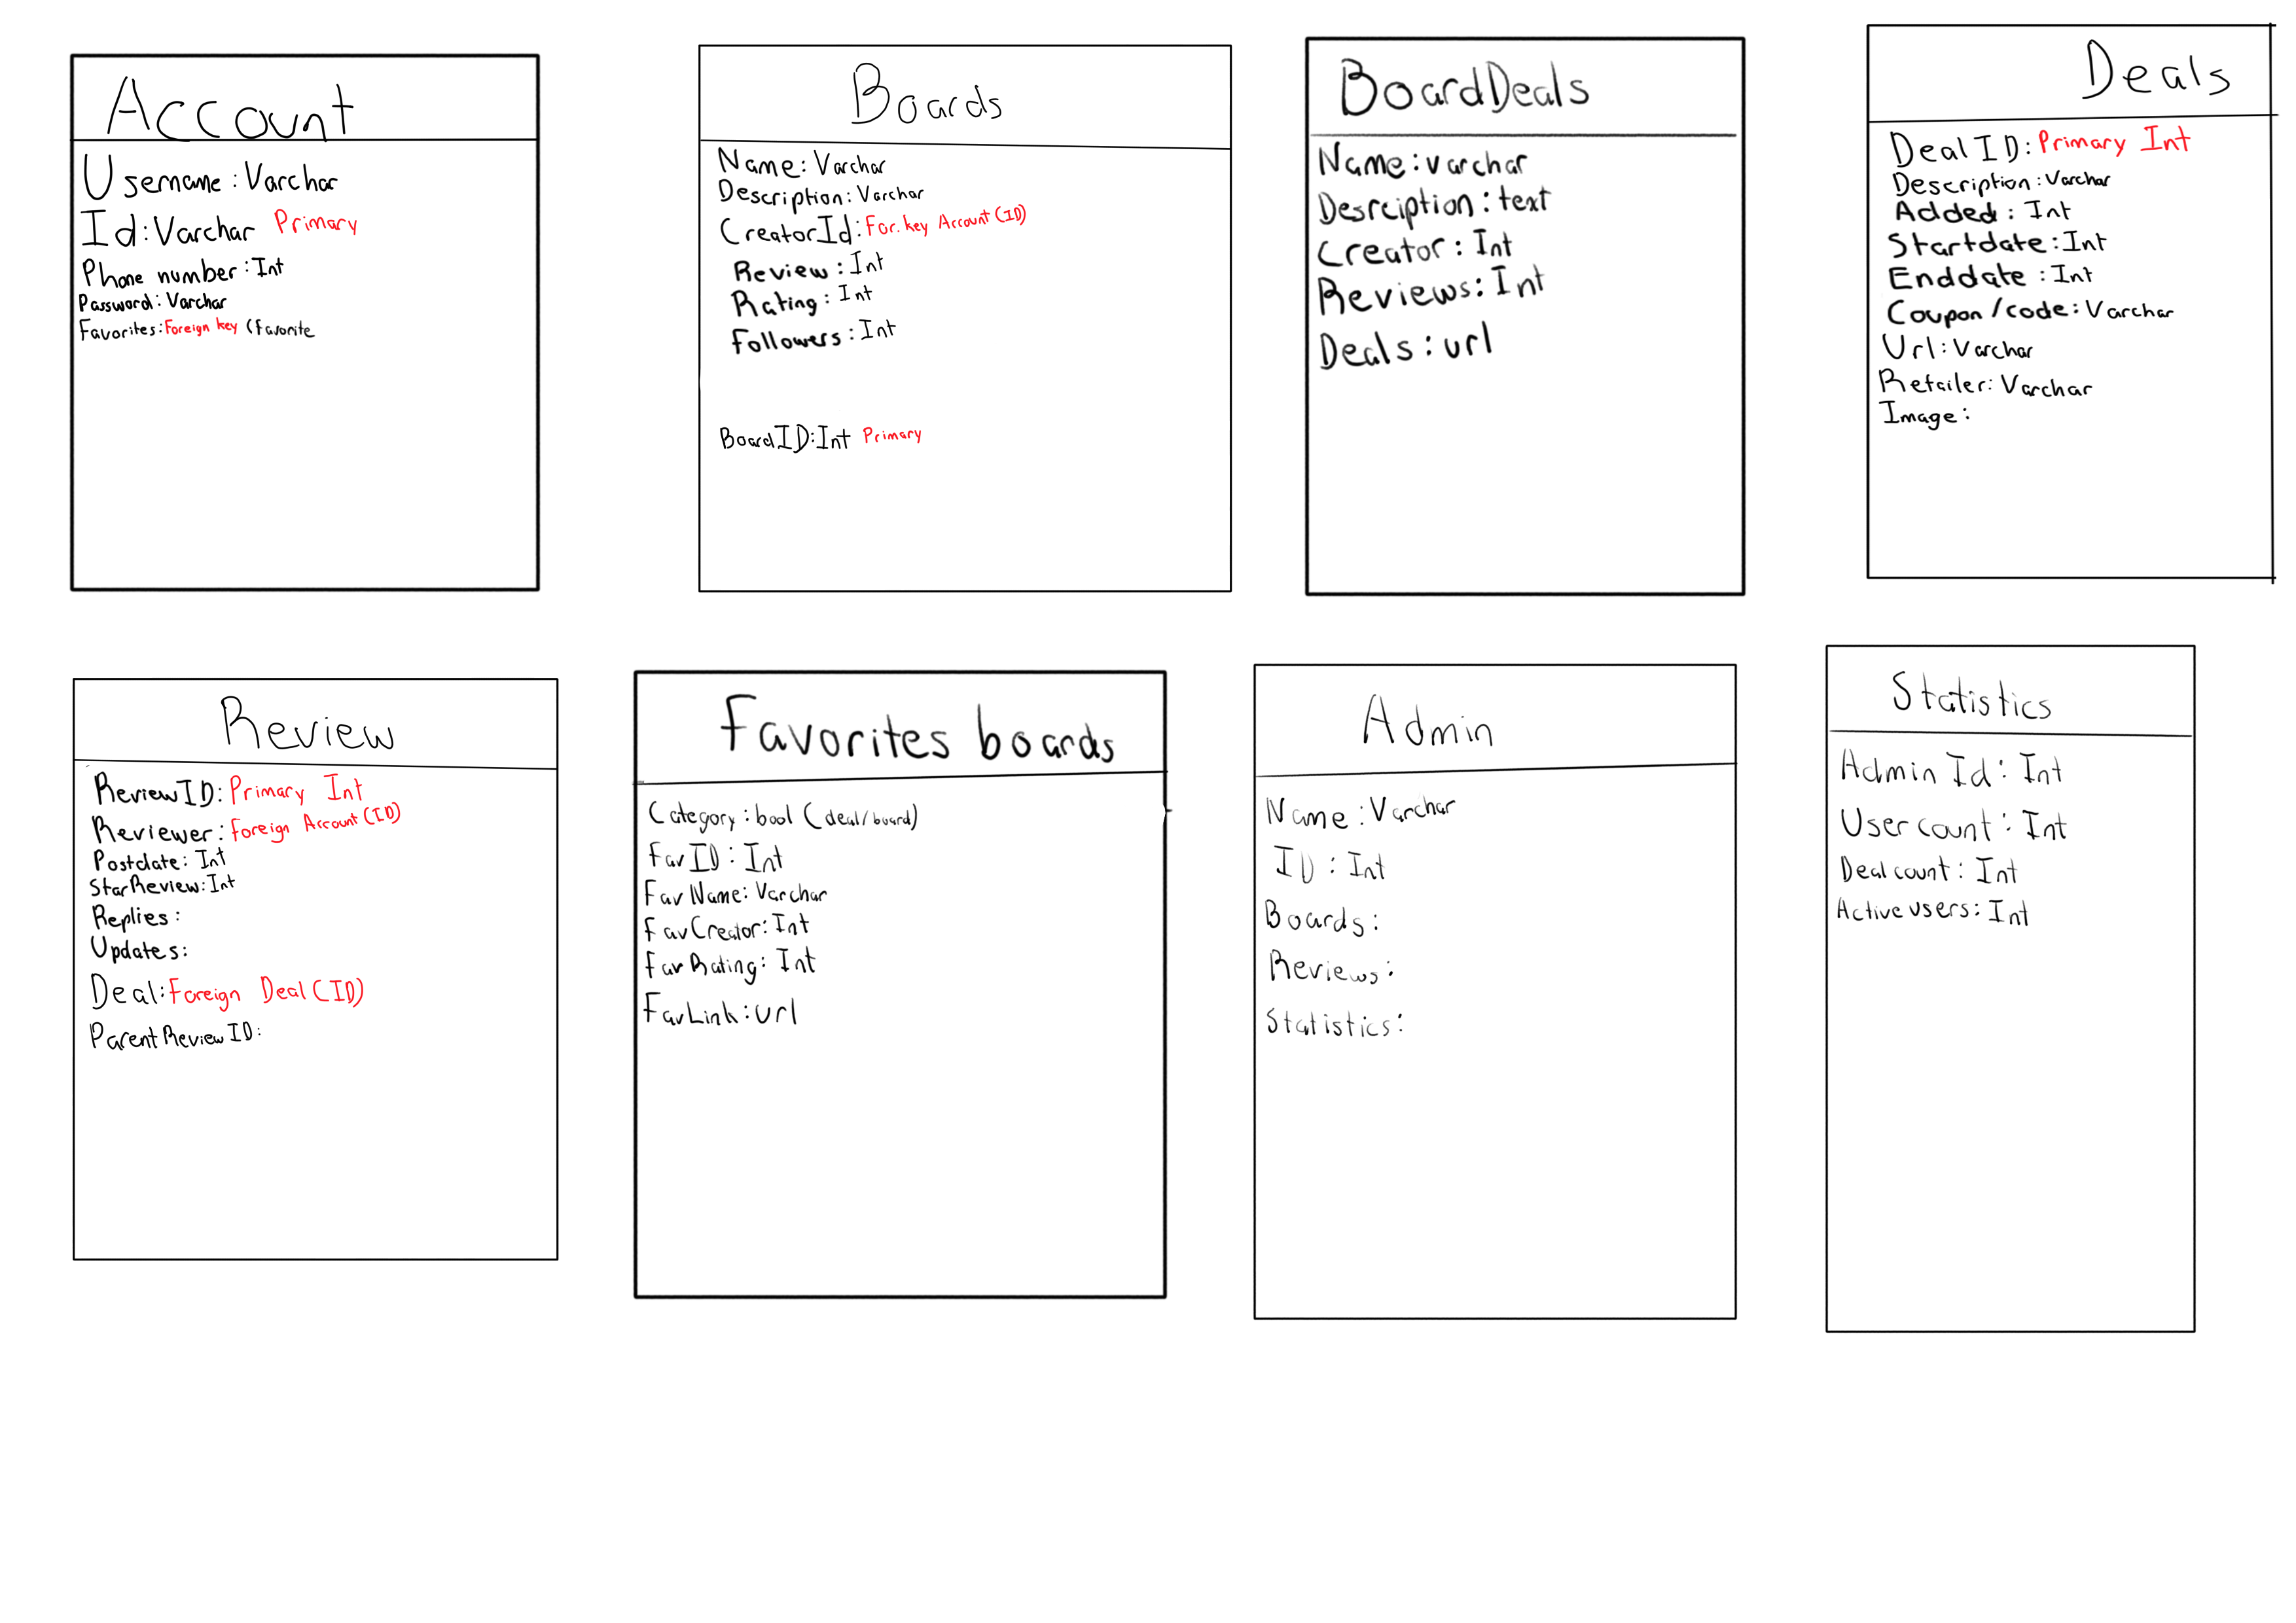 Account
Username: Varchar
Id: Varchar Primary
Phone number: Int
Password: Varchar
Favorites: Foreign key (favorite
Boards
Name: Varchar
Description: Varchar
CreatorId: For. key Account (ID)
Review: Int
Rating: Int
Followers: Int
BoardID: Int Primary
BoardDeals
Name: varchar
Desrciption: text
Creator: Int
Reviews: Int
Deals: url
Deals
Deal ID: Primary Int
Description: Varchar
Added: Int
Startdate: Int
Enddate: Int
Coupon/code: Varchar
Url: Varchar
Retailer: Varchar
Image:
Review
ReviewID: Primary Int
Reviewer: Foreign Account (ID)
Postdate: Int
StarReview: Int
Replies:
Updates:
Deal: Foreign Deal (ID)
ParentReviewID:
Favorites boards
Category: bool (deal/board)
FavID: Int
FavName: Varchar
FavCreator: Int
FavRating: Int
FavLink: url
Admin
Name: Varchar
ID: Int
Boards:
Reviews:
Statistics:
Statistics
Admin Id: Int
User count: Int
Deal count: Int
Active users: Int